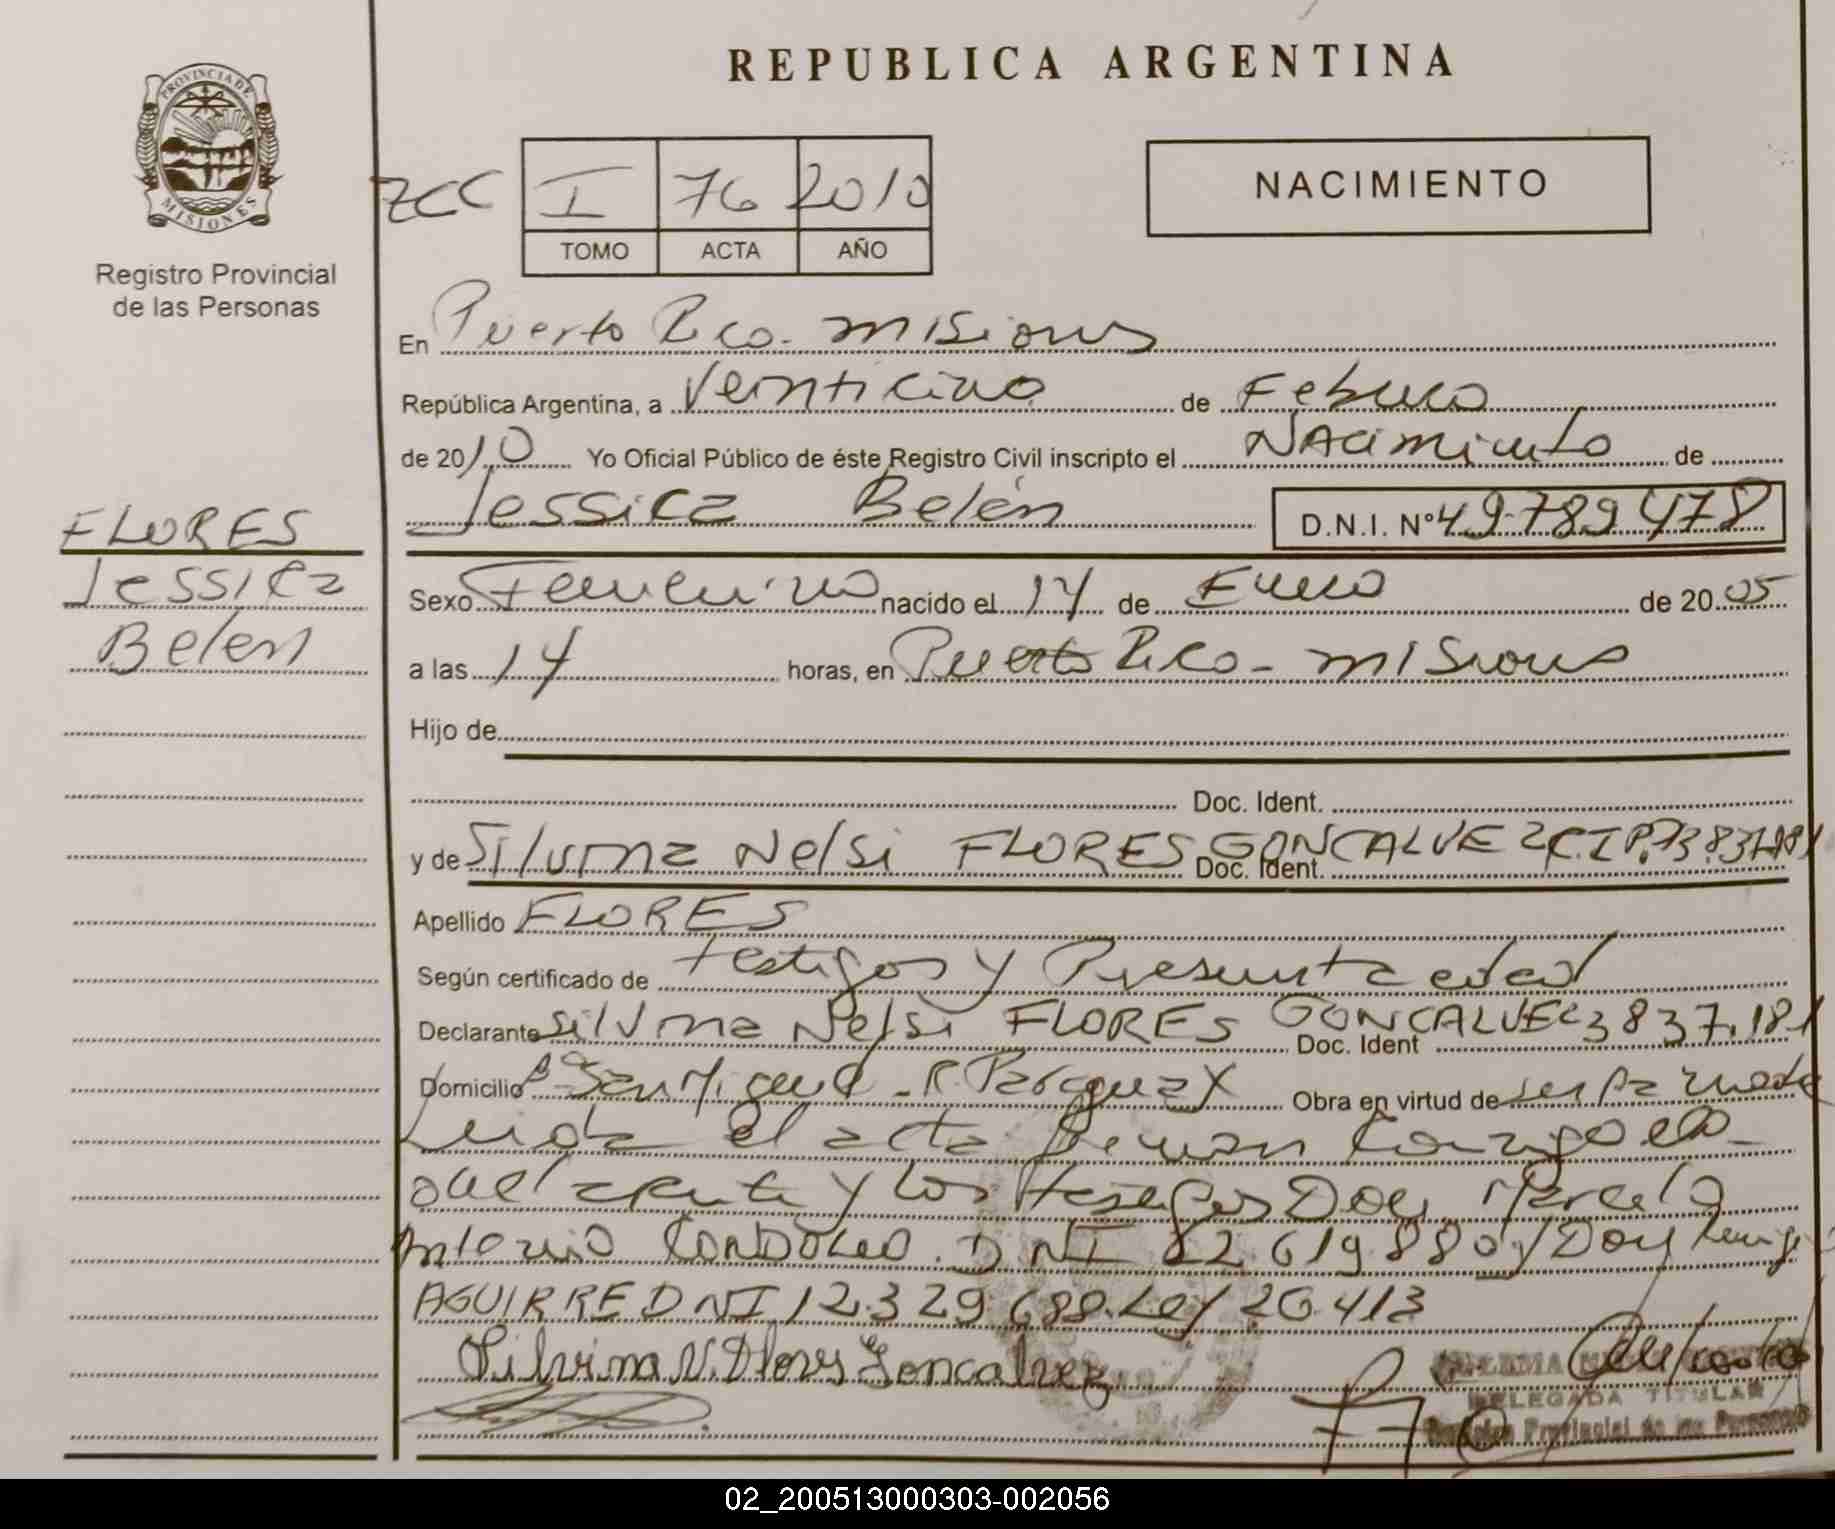 REPUBLICA ARGENTINA
PROVINCIA DE
MISIONES
Registro Provincial
de las Personas
ZCC I 76 2010
TOMO ACTA AÑO
NACIMIENTO
En Puerto Rico - Misiones
República Argentina, a Veinticinco de Febrero
de 2010 Yo Oficial Público de éste Registro Civil inscripto el Nacimiento de
Jessica Belén D.N.I. Nº 49.789.478
FLORES
Jessica
Belen
Sexo Femenino nacido el 14 de Enero de 2005
a las 14 horas, en Puerto Rico - Misiones
Hijo de
Doc. Ident.
y de Silvina Nelsi FLORES GONCALVEZ Doc. Ident. C.I.P. 3.837.181
Apellido FLORES
Según certificado de testigos y Presunta edad
Declarante Silvina Nelsi FLORES GONCALVEZ Doc. Ident 3837.181
Domicilio Bº San Miguel - R. Paraguay Obra en virtud de ser la madre
Leida el acta firman conmigo el
declarante y los testigos Don Marcelo
Antonio DNI 12.619.880 y Don
AGUIRRE DNI 12.329.688. Ley 26.413
Silvina N. Flores Goncalvez
DELEGADA TITULAR
Provincial de las Personas
02_200513000303-002056